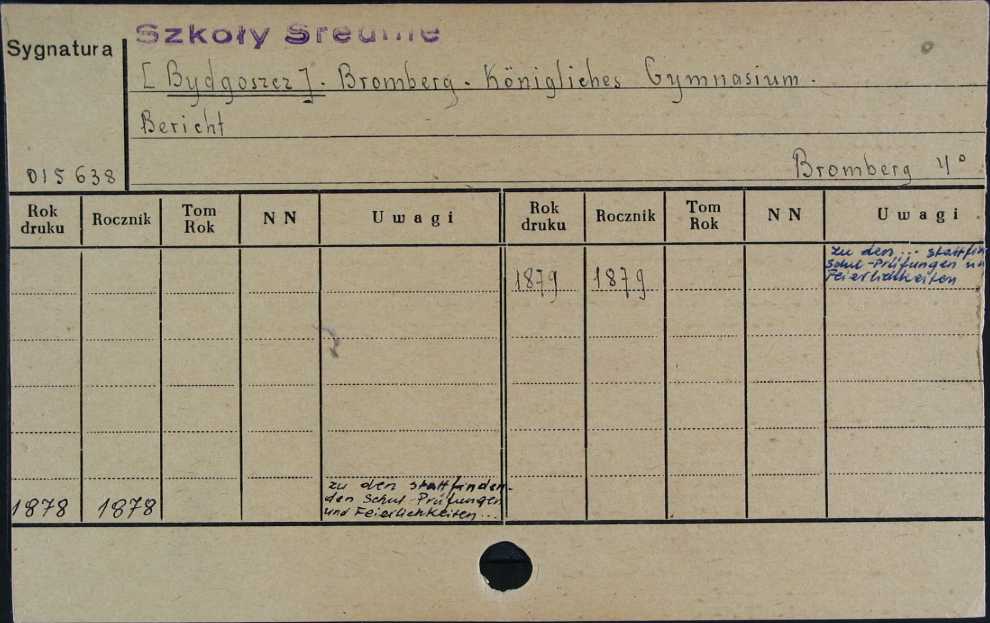 Szkoły Średnie
Sygnatura
[Bydgoszcz]. Bromberg. Königliches Gymnasium.
Bericht
015638
Bromberg 4°
Rok druku Rocznik Tom Rok NN Uwagi Rok druku Rocznik Tom Rok NN Uwagi
1879 1879 zu den ... stattfin
Schul-Prüfungen un
Feierlichkeiten
1878 1878 zu den stattfinden-
den Schul-Prüfungen
und Feierlichkeiten...